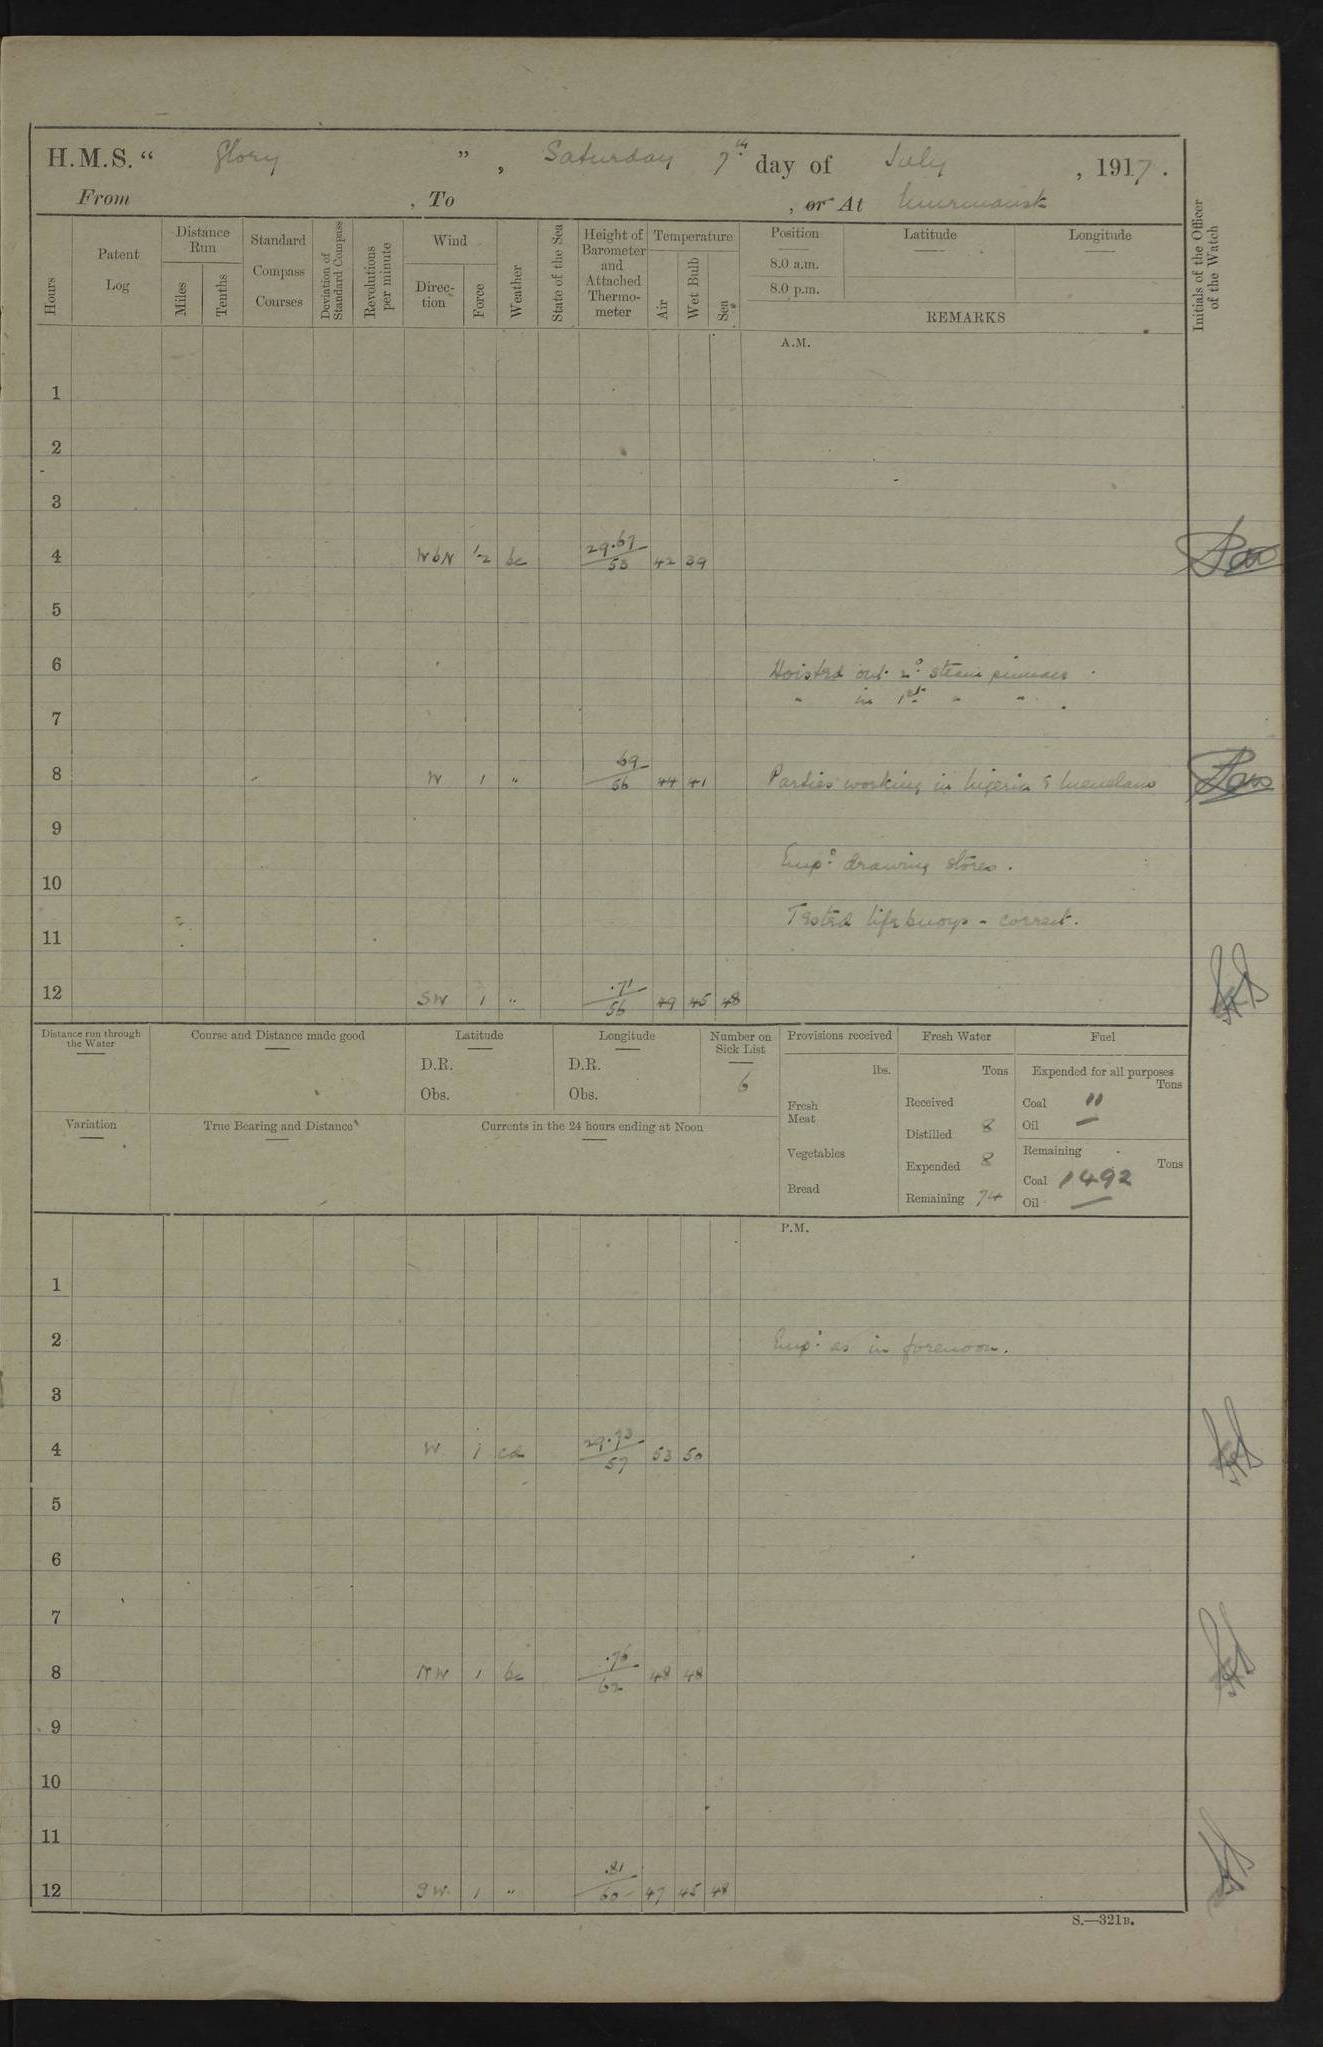 H.M.S. “ Glory ” , Saturday 7th day of July , 1917.
From , To , or At Murmansk
Hours
Patent Log
Distance Run
Miles
Tenths
Standard Compass Courses
Deviation of Standard Compass
Revolutions per minute
Wind
Direction
Force
Weather
State of the Sea
Height of Barometer and Attached Thermometer
Temperature
Air
Wet Bulb
Sea
Position
8.0 a.m.
8.0 p.m.
Latitude
Longitude
REMARKS
Initials of the Officer of the Watch
A.M.
1
2
3
4 WbN 1-2 bc 29.67 53 42 39
5
6 Hoisted out 2o steam pinnace
" in 1st " "
7
8 W 1 " 69 56 44 41 Parties working in Nigeria & Menelaus
9
Empd drawing stores.
10
Tested lifebuoys - correct.
11
12 SW 1 " .71 56 49 45 48
Distance run through the Water
Course and Distance made good
Latitude
D.R.
Obs.
Longitude
D.R.
Obs.
Number on Sick List
6
Provisions received
lbs.
Fresh Meat
Vegetables
Bread
Fresh Water
Tons
Received
Distilled 8
Expended 8
Remaining 74
Fuel
Expended for all purposes
Tons
Coal 11
Oil —
Remaining
Tons
Coal 1492
Oil —
Variation
True Bearing and Distance
Currents in the 24 hours ending at Noon
P.M.
1
2 Empd as in forenoon.
3
4 W 1 29.73 57 53 50
5
6
7
8 NW 1 bc .76 62 48 48
9
10
11
12 SW. 1 " .81 60 47 45 48
S.—321B.